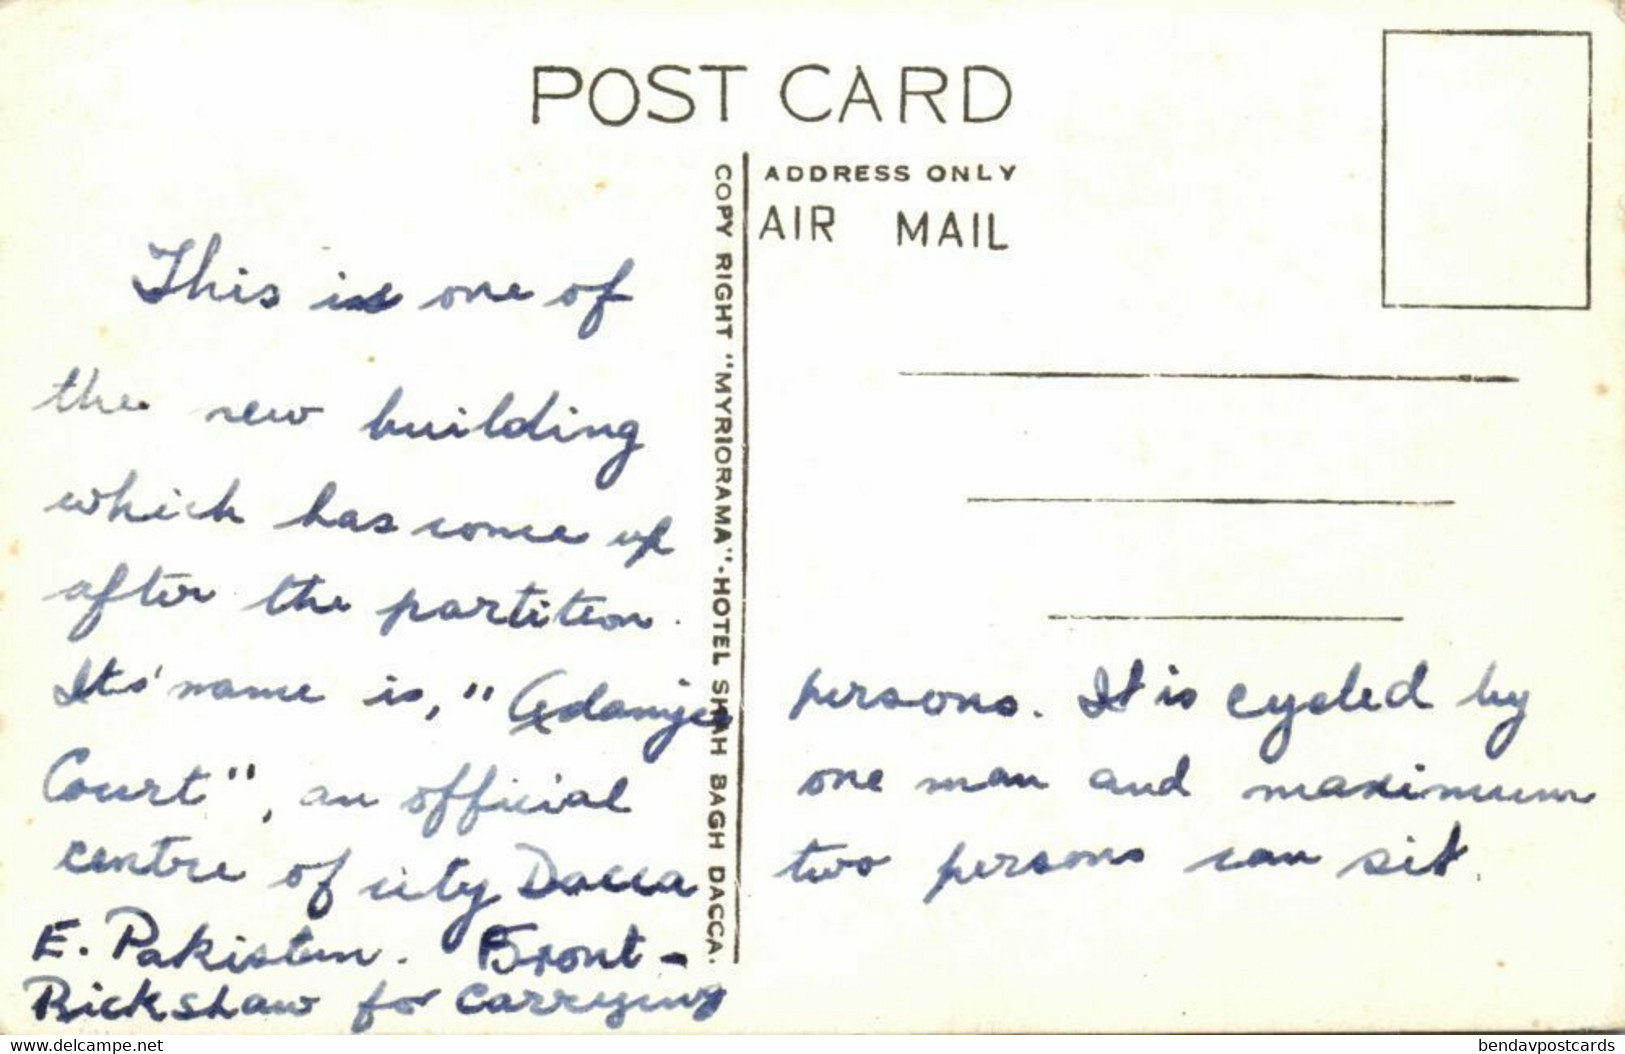 POST CARD
ADDRESS ONLY
AIR MAIL
COPY RIGHT "MYRIORAMA"-HOTEL SHAH BAGH DACCA.
This is one of
the new building
which has come up
after the partition.
Its' name is, "Adamjee
Court", an official
centre of city Dacca
E. Pakistan. Front-
Rickshaw for carrying
persons. It is cycled by
one man and maximum
two persons can sit.
www.delcampe.net
bendavpostcards